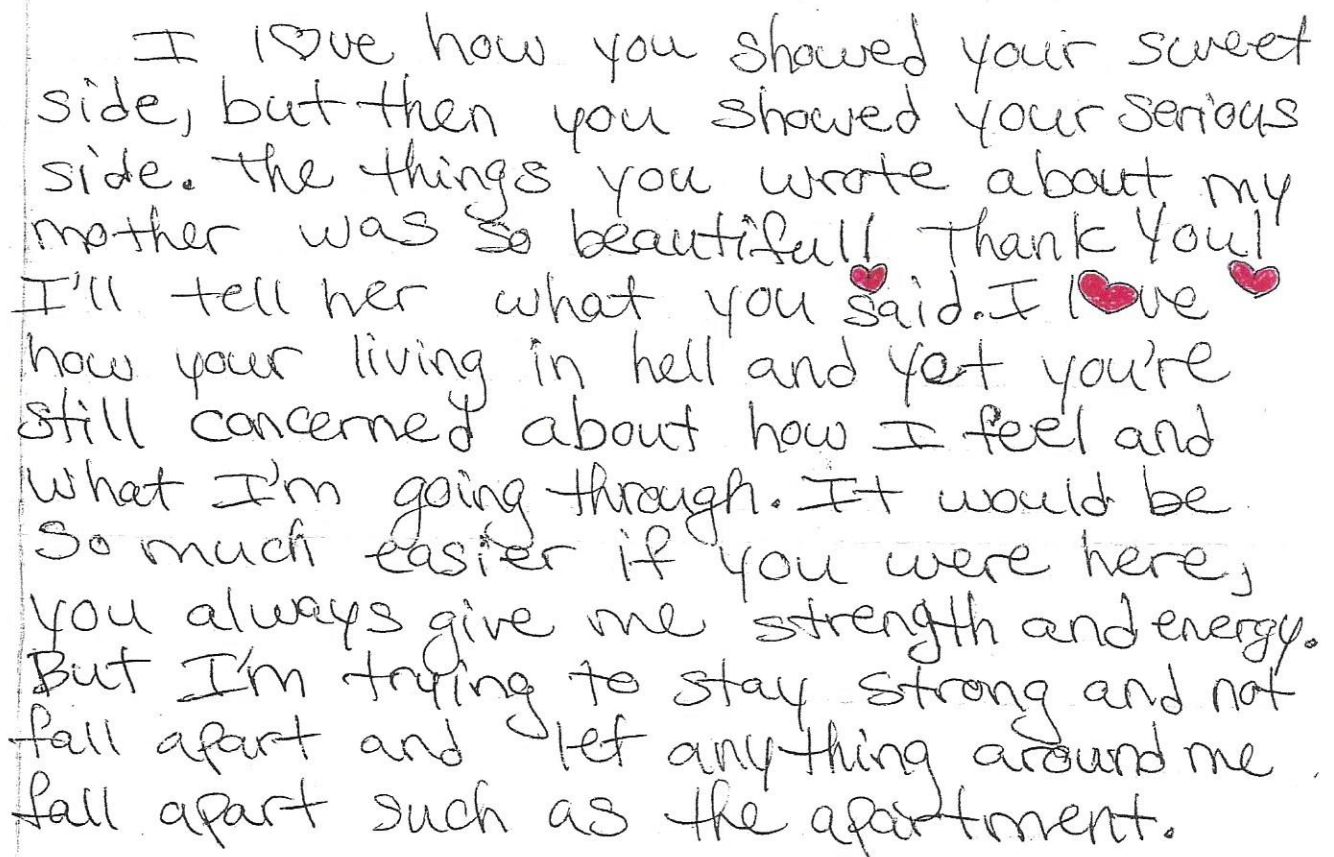 I l♡ve how you showed your sweet
side, but then you showed your serious
side. The things you wrote about my
mother was so beautiful! Thank You!
I'll tell her what you said. I l❤ve
how your living in hell and yet you're
still concerned about how I feel and
what I'm going through. It would be
so much easier if you were here,
you always give me strength and energy.
But I'm trying to stay strong and not
fall apart and let anything around me
fall apart such as the apartment.